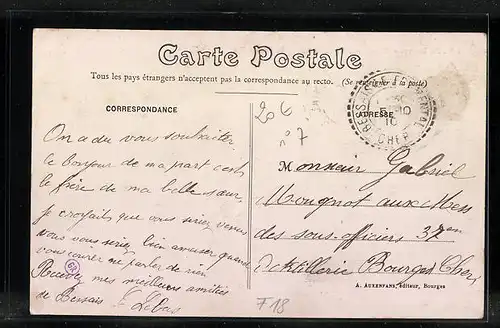 Carte Postale
Tous les pays étrangers n'acceptent pas la correspondance au recto. (Se renseigner à la poste)
CORRESPONDANCE
ADRESSE
206
n° 7
On a du vous souhaiter
le bonjour de ma part c'est
le frère de ma belle sœur
je croyais que vous seriez venus
vous vous seriez bien amuser quand
vous courer me parler de rien
Recevez mes meilleurs amitiés
de Bessais
Monsieur Gabriel
Mougnot aux Mess
des sous-officiers 37em
Artillerie Bourges Cher
A. AUXENFANS, éditeur, Bourges
F18